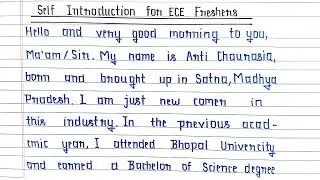 Self Introduction for ECE Freshers
Hello and very good morning to you,
Ma'am/Sir. My name is Arti Chaurasia,
born and brought up in Satna, Madhya
Pradesh. I am just new comer in
this industry. In the previous acad-
emic year, I attended Bhopal Univercity
and earned a Bachelor of Science degree